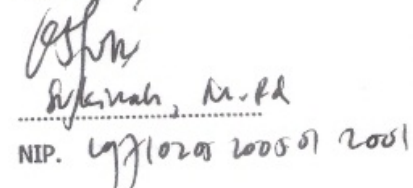 Sukinah, M.Pd
NIP. 19710205 200501 2001